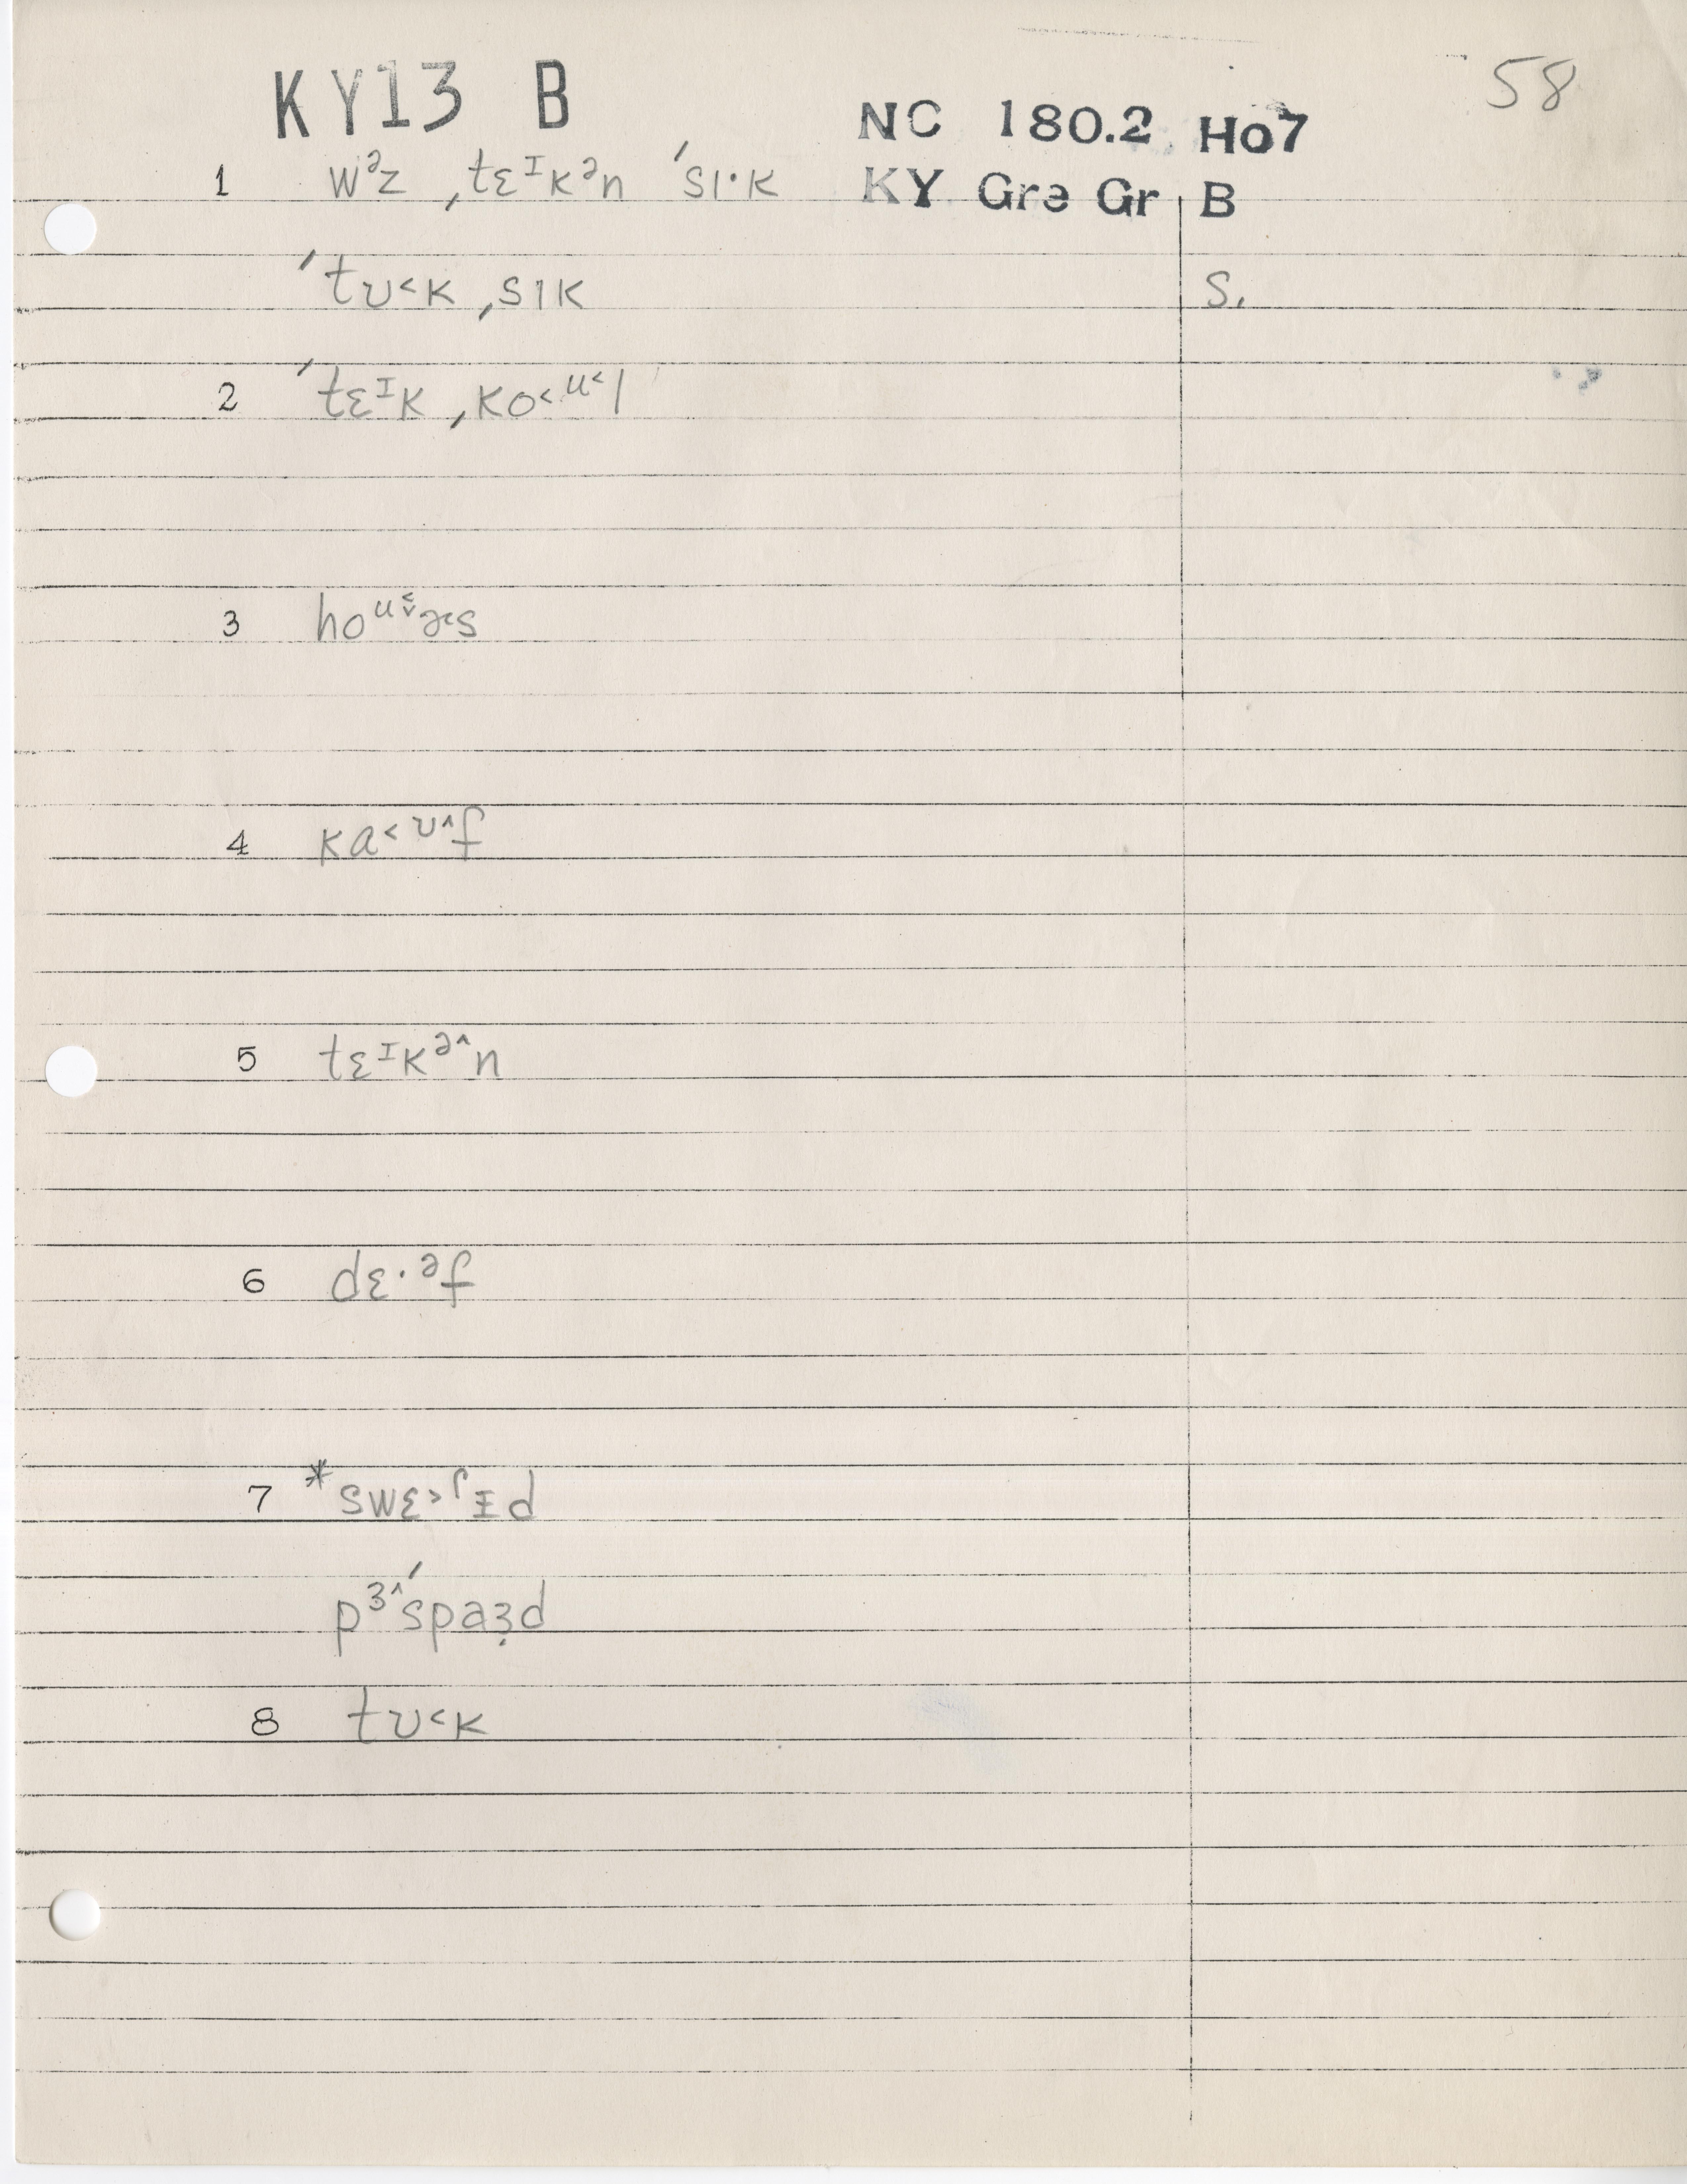 58
KY13 B
NC 180.2 Ho7
1 wᵊz ˌtɛᴵkᵊn ˈsɪ·k KY Grə Gr B
ˈtʊ˂k ˌsɪk S.
2 ˈtɛᴵk ˌko˂ᵘ˂l
3 hoᵘ˂̬ɚs
4 kɑ˂ᶷ˄f
5 tɛᴵkᵊ˄n
6 dɛ·ᵊf
7 *swɛ˃ɾɪd
pɜ˄ˈspaɜ̣d
8 tʊ˂k